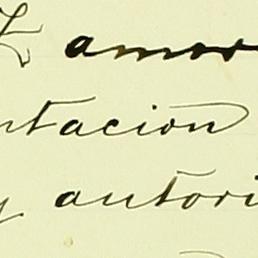 Z amor
ntacion
y autori